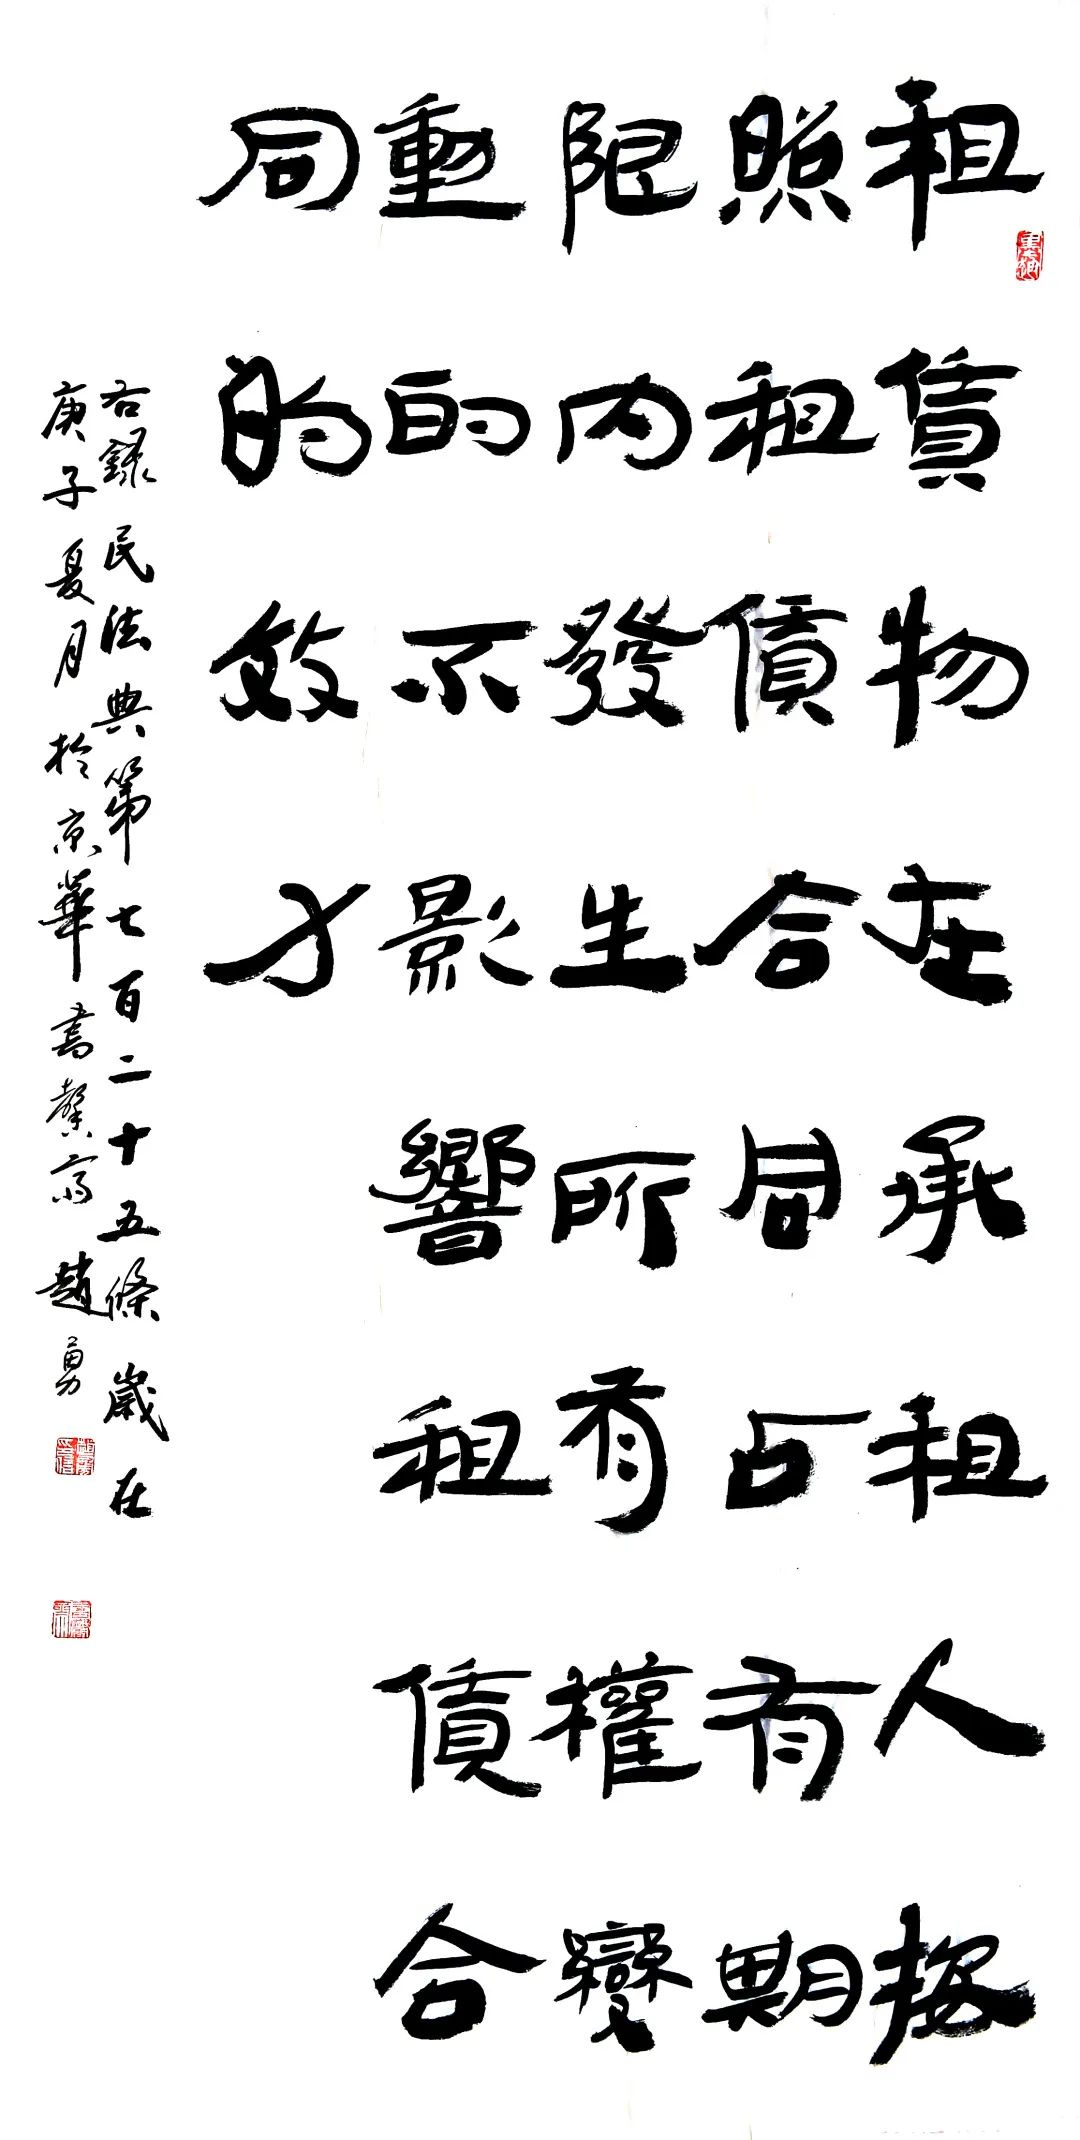 租賃物在承租人按
照租賃合同占有期
限内發生所有權變
動的不影響租賃合
同的效力
右錄民法典第七百二十五條歲在
庚子夏月於京華書馨齋趙勇